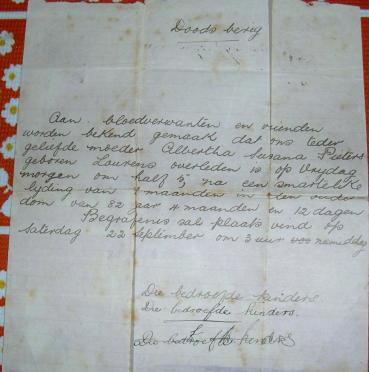 Doods berig
Aan bloedverwanten en vrienden
worden bekend gemaak dat ons teder
geliefde moeder Albertha Susana Pieters
geboren Laurens overleden is op Vrydag
morgen om half 5 na een smartelike
lyding van 4 maanden in den ouder
dom van 82 jaar 4 maanden en 12 dagen
Begrafenis sal plaats vind op
Saterdag 22 September om 3 uur namiddag
Die bedroefde kinders
Die bedroefde kinders.
Die bedroefde kinders